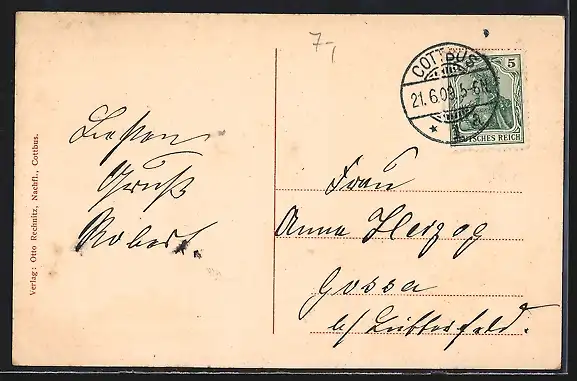 7-,
COTTBUS
21.6.09. 5-6N.
* 1
5
DEUTSCHES REICH
Besten
Gruß
Robert.
Frau
Anna Herzog
Gossa
b/ Bitterfeld.
Verlag: Otto Rechnitz, Nachfl., Cottbus.